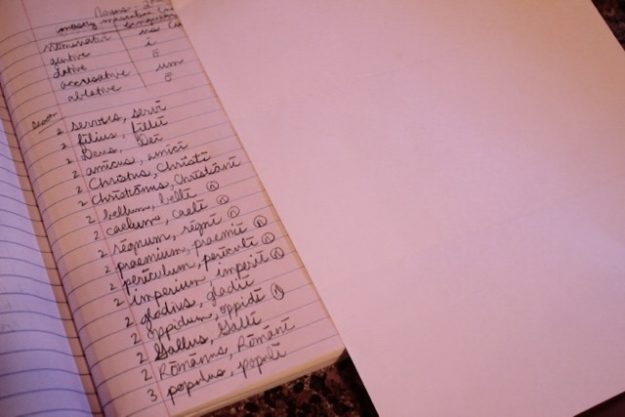 Nouns -
nominative us
genitive i
dative ō
accusative um
ablative ō
2 servus, servī
2 fīlius, fīliī
2 Deus, Deī
2 amīcus, amīcī
2 Chrīstus, Chrīstī
2 Chrīstiānus, Chrīstiānī
2 bellum, bellī (n)
2 caelum, caelī (n)
2 rēgnum, rēgnī (n)
2 praemium, praemiī (n)
2 perīculum, perīculī (n)
2 imperium, imperiī (n)
2 gladius, gladiī
2 oppidum, oppidī (n)
2 Gallus, Gallī
2 Rōmānus, Rōmānī
3 populus, populī